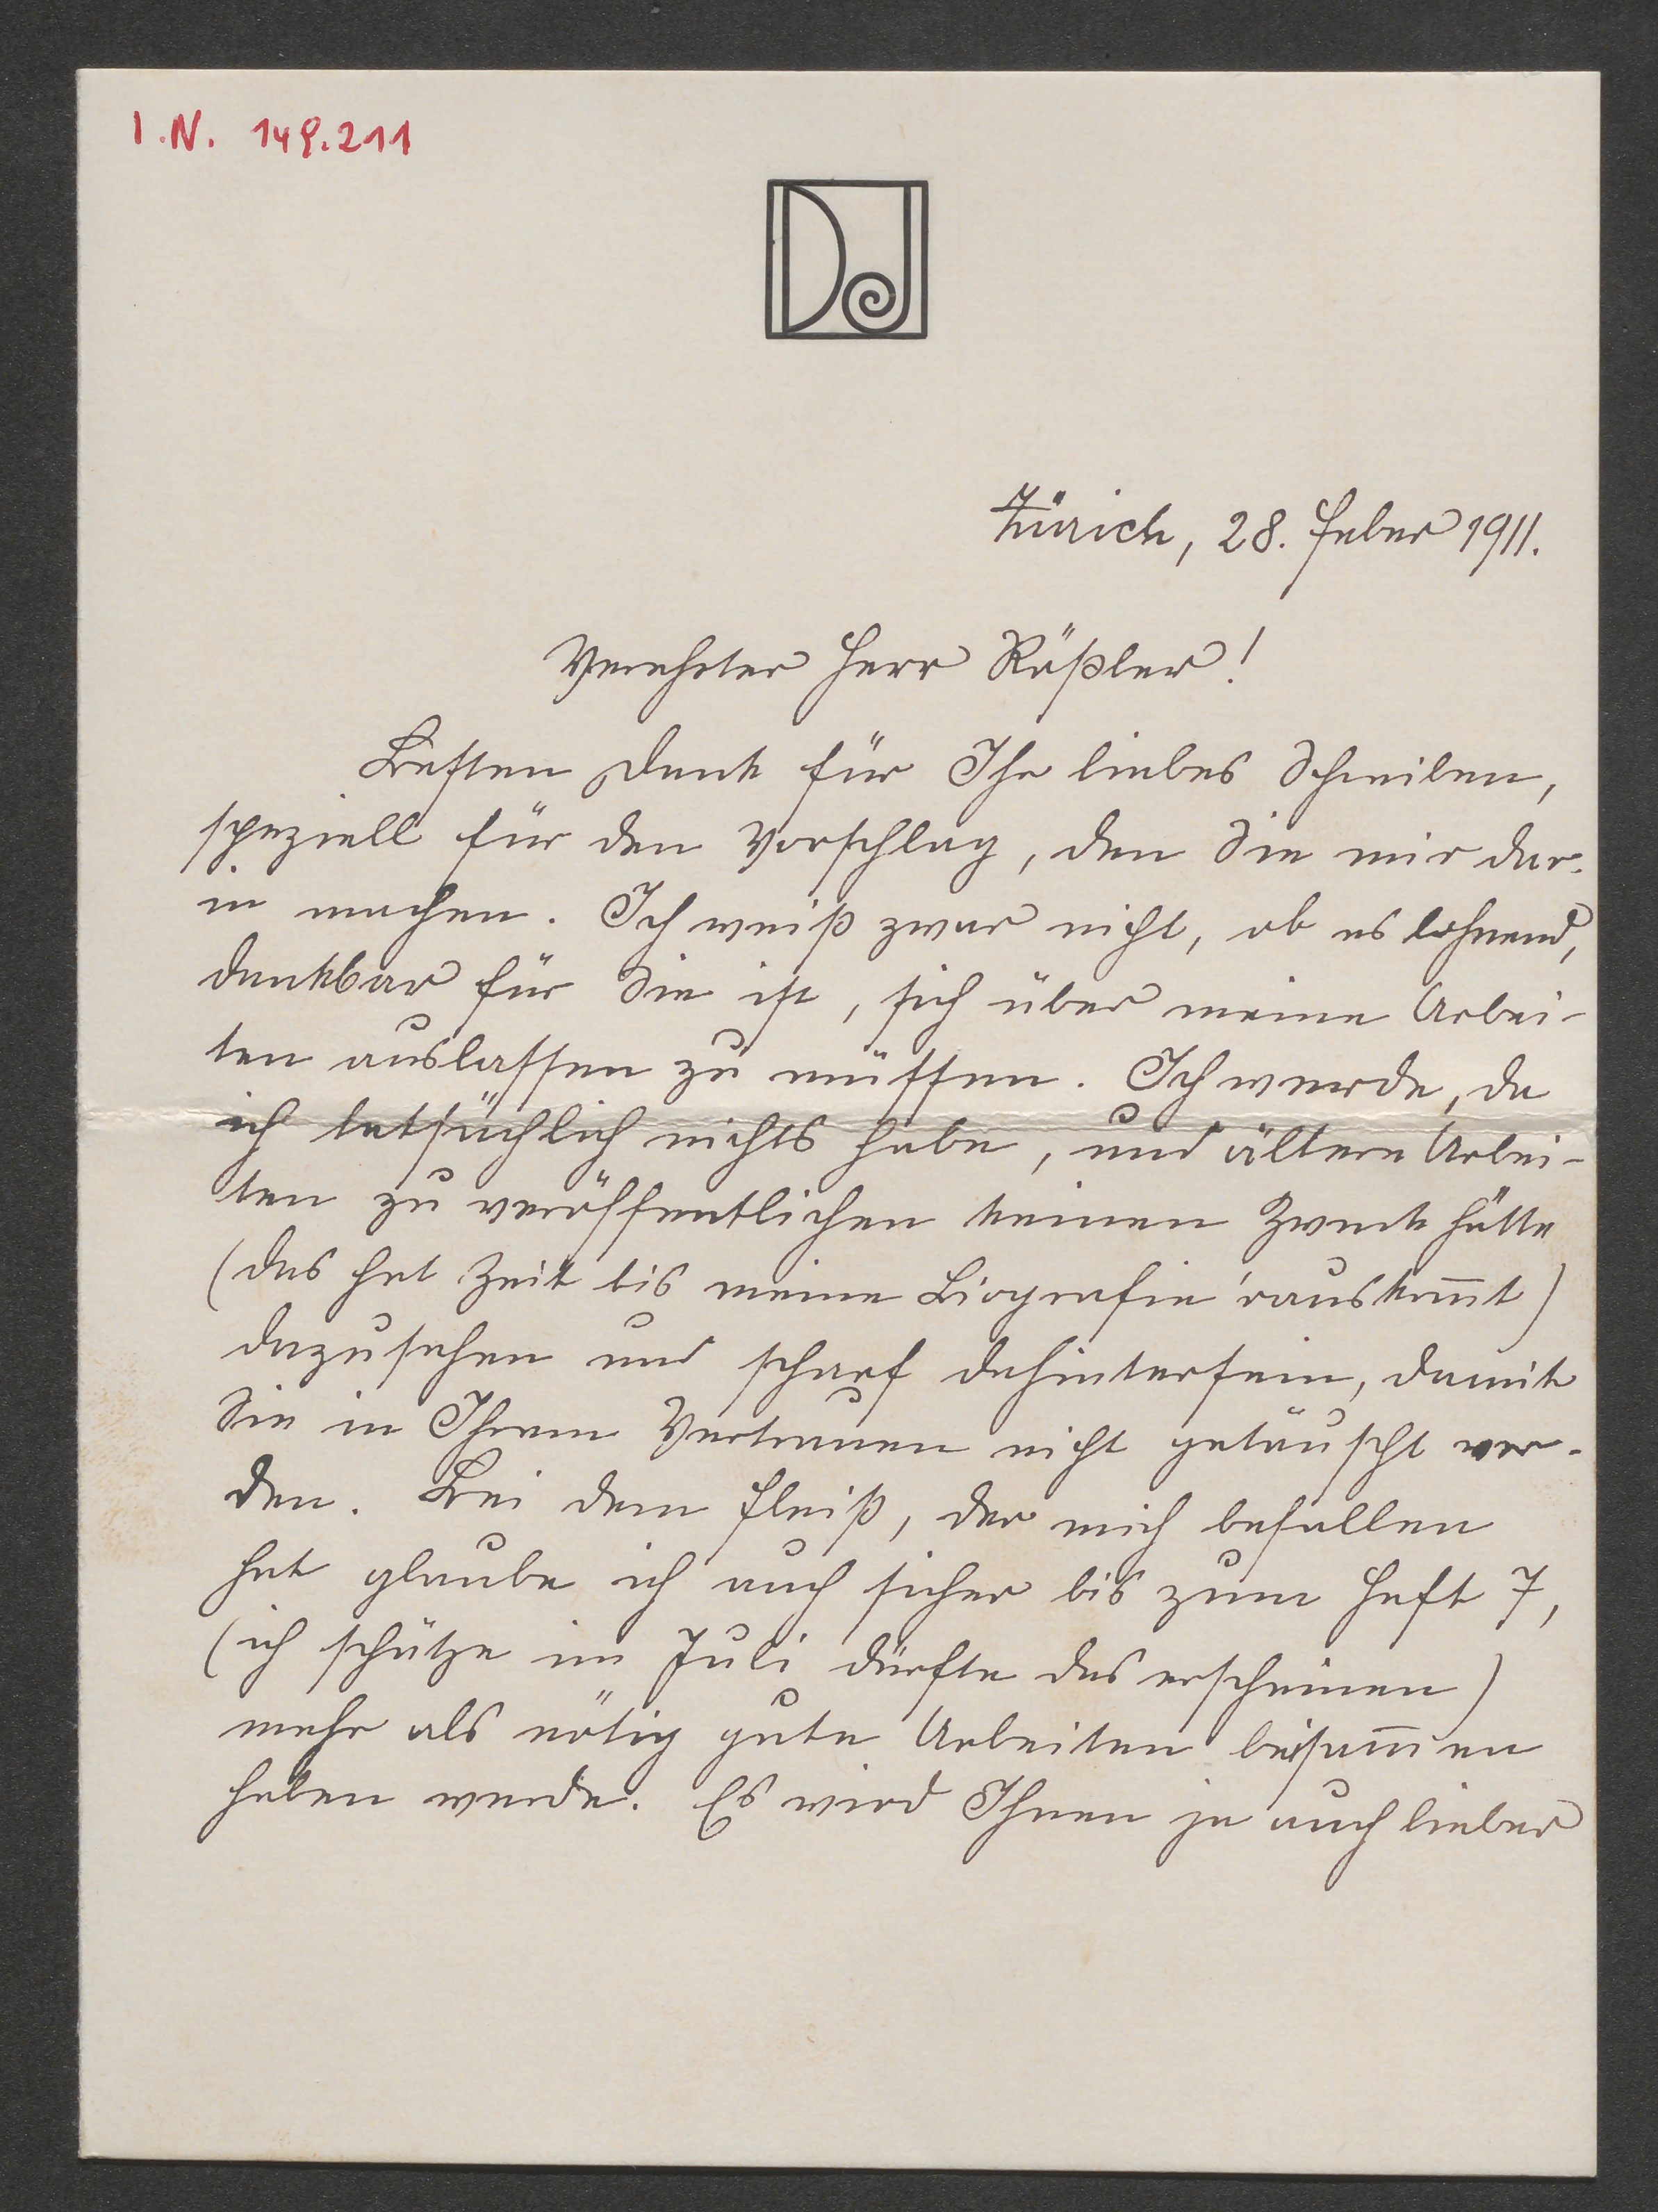 I.N. 149.211
DJ
Zürich, 28. Feber 1911.
Verehrter Herr Rößler!
Besten Dank für Ihr liebes Schreiben,
speziell für den Vorschlag, den Sie mir dar-
in machen. Ich weiß zwar nicht, ob es lohnend,
dankbar für Sie ist, sich über meine Arbei-
ten auslassen zu müssen. Ich werde, da
ich tatsächlich nichts habe, und ältere Arbei-
ten zu veröffentlichen keinen Zweck hätte
(das hat Zeit bis meine Biografie 'rauskom̅t)
dazusehen und scharf dahintersein, damit
Sie in Ihrem Vertrauen nicht getäuscht wer-
den. Bei dem Fleiß, der mich befallen
hat glaube ich auch sicher bis zum Heft 7,
(ich schätze im Juli dürfte das erscheinen)
mehr als nötig gute Arbeiten beisam̅en
haben werde. Es wird Ihnen ja auch lieber